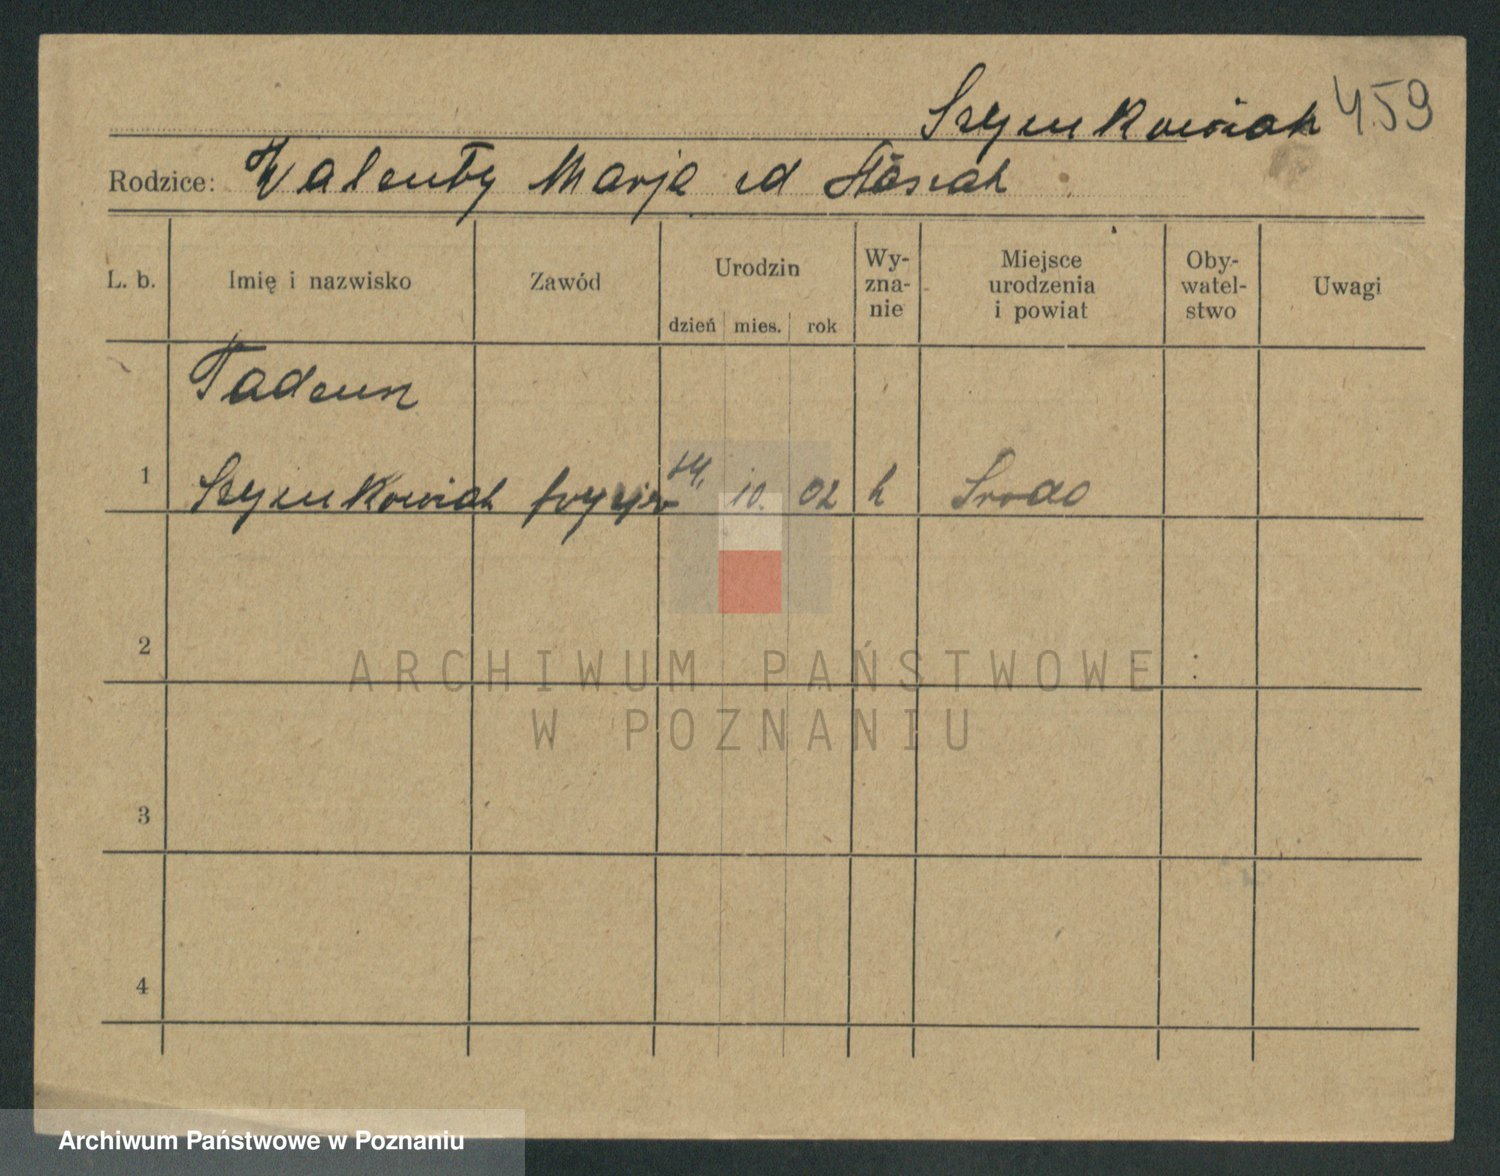 Szymkowiak 459
Rodzice: Walenty Marja
L. b. Imię i nazwisko Zawód Urodzin dzień mies. rok Wy-
zna-
nie Miejsce
urodzenia
i powiat Oby-
watel-
stwo Uwagi
Tadeusz
1 Szymkowiak fryzjer 14. 10. 02 k Środa
2
3
4
ARCHIWUM PAŃSTWOWE
W POZNANIU
Archiwum Państwowe w Poznaniu